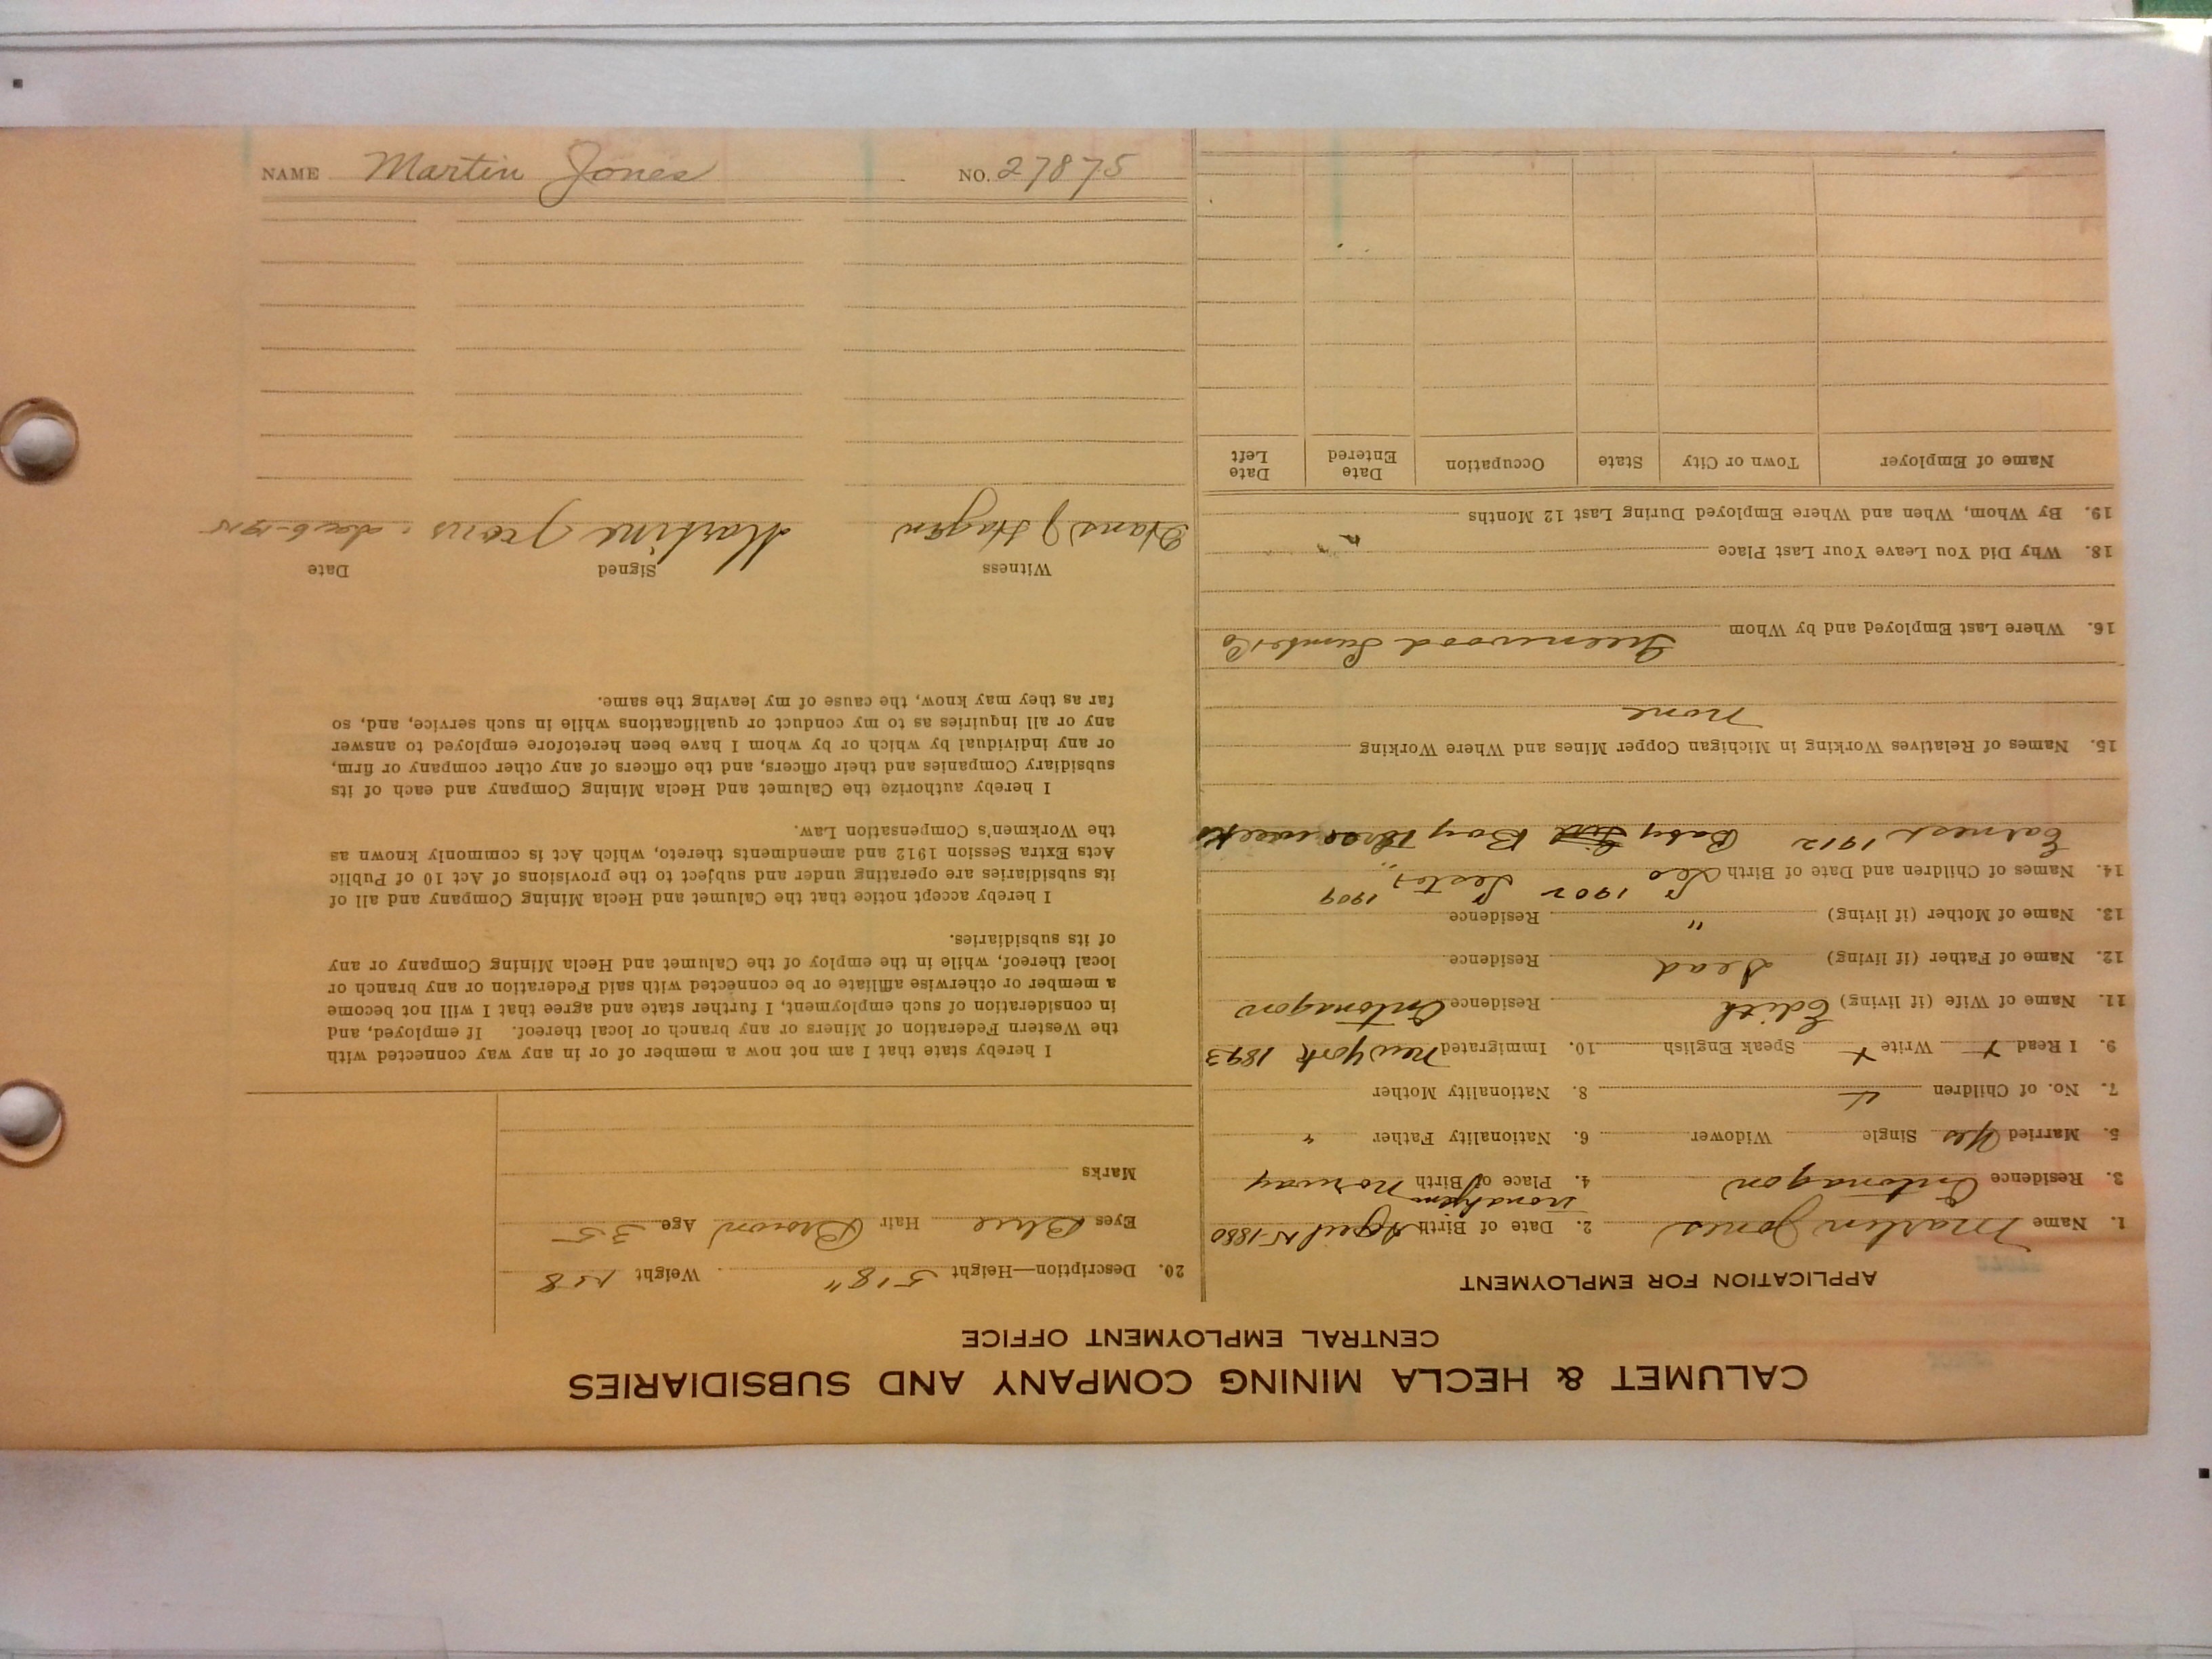 NAME Martin Jones NO. 27875
CALUMET & HECLA MINING COMPANY AND SUBSIDIARIES
CENTRAL EMPLOYMENT OFFICE
APPLICATION FOR EMPLOYMENT
1. Name Martin Jones 2. Date of Birth April 15-1880
3. Residence Ontonagon 4. Place of Birth Trondhjem Norway
5. Married Yes Single Widower 6. Nationality Father "
7. No. of Children 4 8. Nationality Mother
9. I Read + Write + Speak English 10. Immigrated New York 1893
11. Name of Wife (if living) Edith Residence Ontonagon
12. Name of Father (if living) Dead Residence
13. Name of Mother (if living) " Residence
14. Names of Children and Date of Birth Leo 1902 Lester 1909
Earnest 1912 Baby Boy three weeks
15. Names of Relatives Working in Michigan Copper Mines and Where Working
None
16. Where Last Employed and by Whom Greenwood Lumber Co
18. Why Did You Leave Your Last Place
19. By Whom, When and Where Employed During Last 12 Months
Name of Employer Town or City State Occupation Date Entered Date Left
20. Description—Height 5'8" Weight 158
Eyes Blue Hair Brown Age 35
Marks
I hereby state that I am not now a member of or in any way connected with
the Western Federation of Miners or any branch or local thereof. If employed, and
in consideration of such employment, I further state and agree that I will not become
a member or otherwise affiliate or be connected with said Federation or any branch or
local thereof, while in the employ of the Calumet and Hecla Mining Company or any
of its subsidiaries.
I hereby accept notice that the Calumet and Hecla Mining Company and all of
its subsidiaries are operating under and subject to the provisions of Act 10 of Public
Acts Extra Session 1912 and amendments thereto, which Act is commonly known as
the Workmen's Compensation Law.
I hereby authorize the Calumet and Hecla Mining Company and each of its
subsidiary Companies and their officers, and the officers of any other company or firm,
or any individual by which or by whom I have been heretofore employed to answer
any or all inquiries as to my conduct or qualifications while in such service, and, so
far as they may know, the cause of my leaving the same.
Witness Signed Date
Hans J Hagen Martin Jones 6-1915